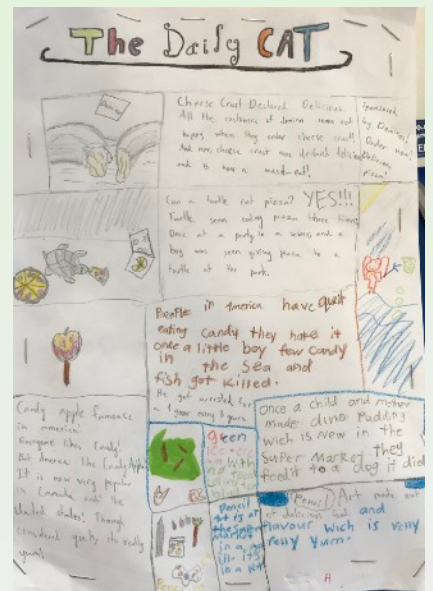 The Daily CAT
Cheese Crust Declared Delicious.
All the customers of domino
when they order cheese crust!
And now, cheese crust was declared delicious
and is now a must-eat!
Sponsored
by Dominos!
Order now!
Delicious
pizza!
Can a turtle eat pizza? YES!!!
Turtle seen eating pizza three times
Once at a party in a sewer and a
boy was seen giving pizza to a
turtle at the park.
People in America have quit
eating candy they hate it
once a little boy few candy
in the sea and
fish got killed.
He got arrested for
Candy Apple famouse
in america!
Everyone likes Candy!
But America like Candy Apple
It is now very popular
in Canada and the
United states! Though
considered yucky its really
yum!
green
ice-cream
with
Once a child and mother
made dino pudding
wich is new in the
super market they
feed it to a dog it died
Pencil
it is at
the super
market
in a
Pencil Art made out
of delicious and
flavour wich is relly
relly yum.